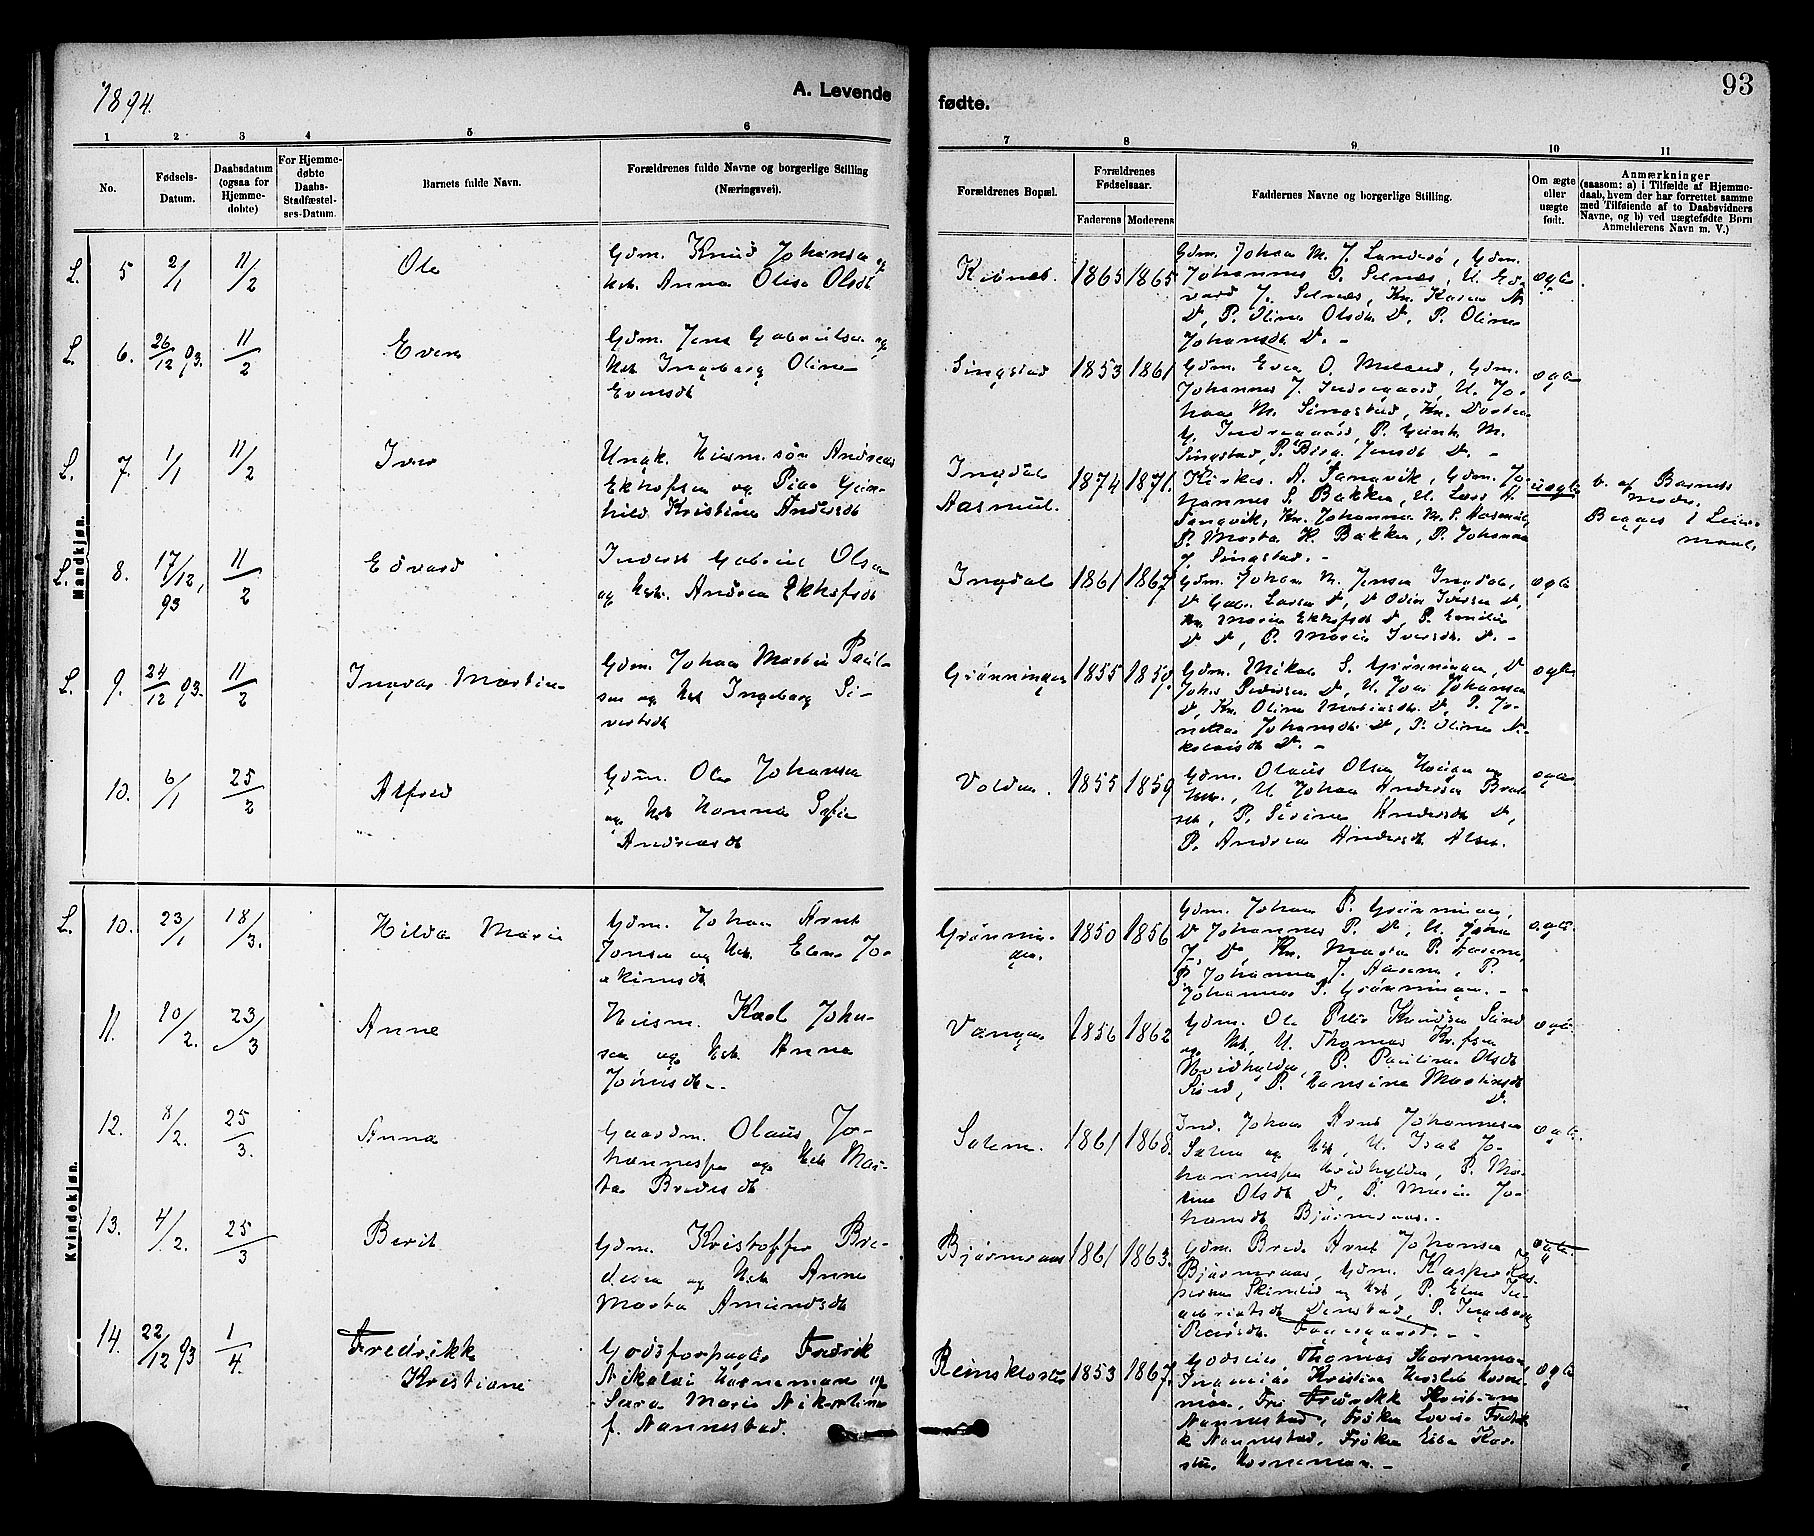 1894.
A. Levende
fødte.
93
1 2 3 4 5 6
7 8 9 10 11
No.
Fødsels-
Datum.
Daabsdatum
(ogsaa for
Hjemme-
døbte)
For Hjemme-
døbte
Daabs-
Stadfæstel-
ses-Datum.
Barnets fulde Navn.
Forældrenes fulde Navne og borgerlige Stilling
(Næringsvei).
Forældrenes Bopæl.
Forældrenes
Fødselsaar.
Faderens Moderens
Faddernes Navne og borgerlige Stilling.
Om ægte
eller
uægte
født.
Anmærkninger
(saasom: a) i Tilfælde af Hjemme-
daab, hvem der har forrettet samme
med Tilføiende af to Daabsvidners
Navne, og b) ved uægtefødte Børn
Anmelderens Navn m. V.)
Mandkjøn.
L. 5 2/1 11/2 Ole
Gdm. Knud Johansen og
Hst. Anna Olise Olsdt
1865 1865
Gdm. Johan M. J. Landsø, Gdm.
Johannes O. Selnæs, U. Ed-
vard J. Selnæs, Kn. Karen A.
D, P. Oline Olsdt D, P. Oline
Johansdt D. -
ægte
L. 6. 26/12 93. 11/2 Even
Gdm. Jens Gabrielsen og
Hst. Ingeborg Oline
Evensdt
Singstad 1853 1861
Gdm. Even O. Meland, Gdm.
Johannes J. Indregaard, U. Jo-
han M. Singstad, Kn. Dortea
G. Indregaard, P. M.
Singstad, P. Jensdt D. -
ægte
L. 7. 1/1 11/2 Iver
Ungk. Huusm. søn Andreas
Ekhofsen og Pige Gun-
hild Kristine Andersdt
Ingdal
Aasmul. 1874 1871.
Kirkes. A. Tangvik, Gdm. Jo-
hannes S. Bakken, U. Lars H.
Tangvik, Kn. Johanna M. S. Aasmul,
P. Marta H. Bakken, P. Johanna
J. Singstad. -
uægte
b. af Barnets
Moder.
Begges 1 Leier-
maal.
L. 8. 17/12, 93 11/2 Edvard
Inderst Gabriel Olsen
og Hst. Andrea Ekhofsdt
Ingdal 1861 1867
Gdm. Johan M. Jensen Ingdal,
D Gabr. Larsen D, D Odin Iversen D,
Kn. Maria Ekhofsdt D, P. Emilie
D D, P. Maria Iversdt. D. -
ægte
L. 9. 24/12 93. 11/2 Ingvar Martin
Gdm. Johan Martin Paul-
sen og Hst. Ingeborg Si-
vertsdt
Grønningen 1855 1859.
Gdm. Mikal S. Grønningen, D
Johs Pedersen D, U. Johansen
D, Kn. Oline D, P. Jo-
Johansdt D, P. Oline Ni-
kolaisdt D. -
ægte
10. 6/1 25/2 Alfred
Gdm. Ole Johansen
og Hst. Hanna Sofie
Andreasdt
Volden. 1855 1859
Gdm. Olaus Olsen og
Hst., U. Johan Andersen
P. Serine Andersdt D,
P. Andrea Andersdt
ægte
Kvindekjøn.
L. 10. 23/1 18/3. Hilda Marie
Gdm. Johan Arnt
Jonsen og Hst. Elen Jo-
akimsdt
Grønnin-
gen. 1850 1856
Gdm. Johan P. Grønningen,
D Johannes P. D, U. Johan
J. D, Kn. Marta P. Aasen,
P. Johanna J. Aasen, P.
Johanna P. Grønningen. -
ægte
11. 10/2. 23/3 Anne
Huusm. Karl Johan-
sen og Hst. Anna
Jønsdt. -
Vangen 1856 1862
Gdm. Ole Peter Knudsen Sund
og Hst, U. Thomas Krfsen
Hvidhylden, P. Pauline Olsdt
Sund, P. Hansine Martinsdt
D.
ægte
12. 8/2. 25/3. Anna
Gaardm. Olaus Jo-
hannessen og Hst Mar-
ta Bredesdt
Salem. 1861 1868.
Ind. Johan Arnt Johannessen
Salem og Hst, U. Isak Jo-
hannessen Hvidhylden, P. Ma-
rine Olsdt D, P. Maria Jo-
hansdt Bjørnraas. -
ægte
13. 4/2. 25/3 Berit
Gdm. Kristoffer Bre-
desen og Hst. Anne
Marta Amundsdt
Bjørnraas 1861 1863.
Gdm. Brede Arnt Johansen
Bjørnraas, Gdm. Kasper Kas-
persen og Hst, P. Elen
P. Ingeborg
Fagergaard. -
ægte.
14. 22/12 93 1/4 Fredrikke
Kristiane
Godsforpagter Fredrik
Nikolai Horneman og
Sara Marie Nikoline
f. Nannestad.
Reinskloster 1853 1867.
Godseier Thomas Horneman,
Ingeniør Kristian Horne-
man, Fru Fredrikke Kristiane
Nannestad, Frøken Lovise Fredrik-
ke Nannestad, Frøken Elen
Horneman. -
ægte